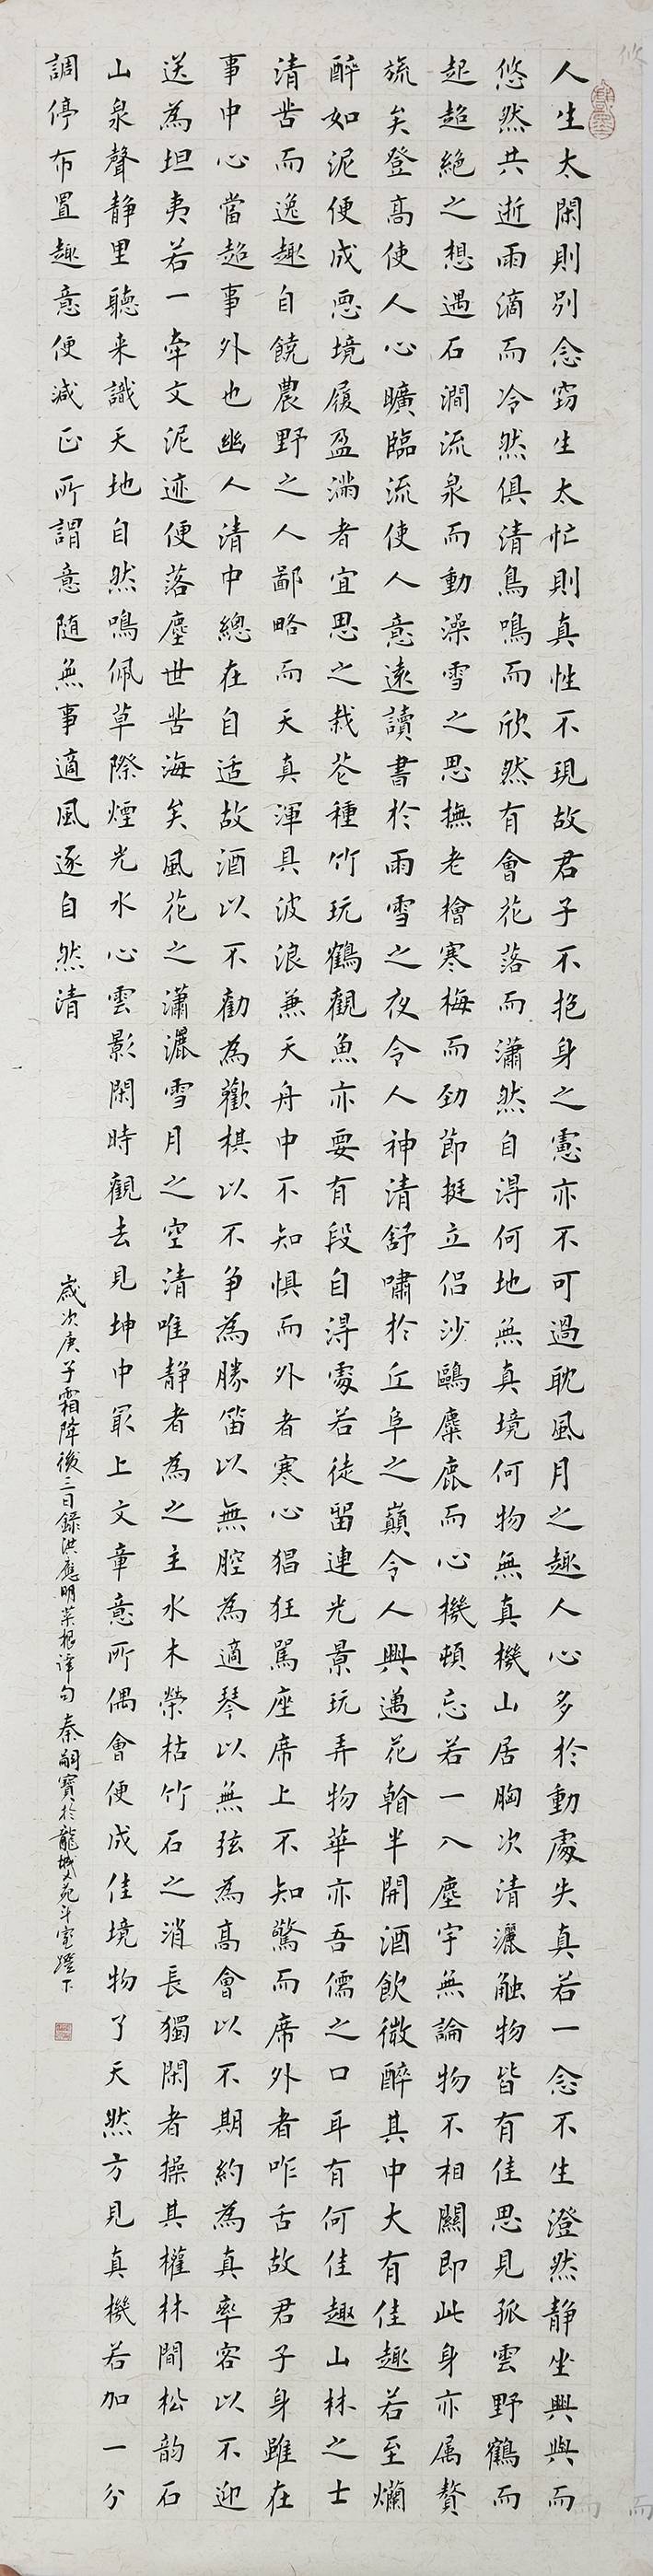 人生太閑則別念竊生太忙則真性不現故君子不抱身之憲亦不可過耽風月之趣人心多於動處失真若一念不生澄然静坐興與而
悠然共逝雨滴而冷然俱清鳥鳴而欣然有會花落而瀟然自淂何地無真境何物無真機山居胸次清灑触物皆有佳思見孤雲野鶴而
起超絶之想遇石澗流泉而動澡雪之思撫老檜寒梅而勁節挺立侣沙鷗麋鹿而心機頓忘若一入塵宇無論物不相關即此身亦属贅
旒矣登高使人心曠臨流使人意遠讀書於雨雪之夜令人神清舒嘯於丘阜之巔令人興邁花翰半開酒飲微醉其中大有佳趣若至爛
醉如泥便成惡境履盈滿者宜思之栽花種竹玩鶴觀魚亦要有段自淂處若徒留連光景玩弄物華亦吾儒之口耳有何佳趣山林之士
清苦而逸趣自饒農野之人鄙略而天真渾具波浪兼天舟中不知惧而外者寒心猖狂駡座席上不知驚而席外者咋舌故君子身雖在
事中心當超事外也幽人清中總在自适故酒以不勸為歡棋以不争為勝笛以無腔為適琴以無弦為高會以不期約為真率容以不迎
送為坦夷若一牵文泥迹便落塵世苦海矣風花之瀟灑雪月之空清唯静者為之主水木榮枯竹石之消長獨閑者操其權林間松韵石
山泉聲静里聽来識天地自然鳴佩草際煙光水心雲影閑時觀去見坤中最上文章意所偶會便成佳境物了天然方見真機若加一分
調停布置趣意便减正所謂意随無事適風逐自然清
歲次庚子霜降後三日録洪應明菜根譚句 秦嗣寶於龍城文苑斗室燈下